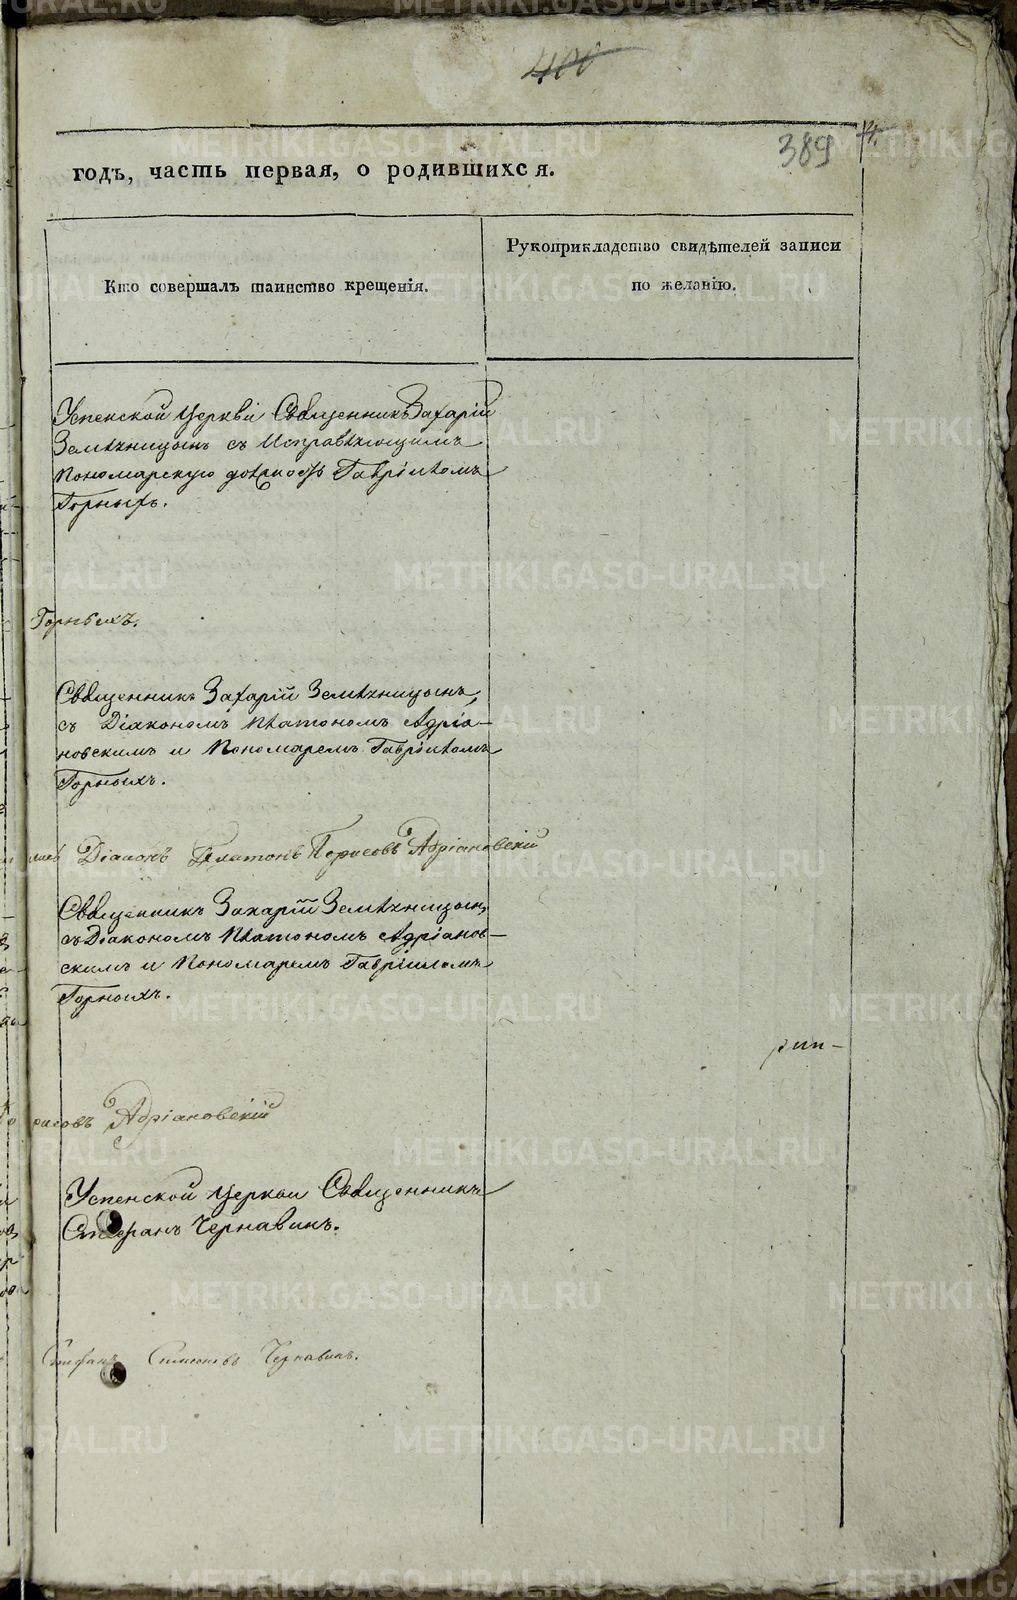 400
389
годъ, часть первая, о родившихся.
Кто совершалъ таинство крещенія.
Рукоприкладство свидѣтелей записи
по желанію.
Успенской Церкви Священникъ Захарій
Земляницынъ съ Исправляющимъ
Пономарскую должность Гавріиломъ
Горныхъ.
Горныхъ.
Священникъ Захарій Земляницынъ,
съ Діакономъ Платономъ Адріа-
новскимъ и Пономаремъ Гавріиломъ
Горныхъ.
Діаконъ Платонъ Адріановскій
Священникъ Захарій Земляницынъ,
съ Діакономъ Платономъ Адріанов-
скимъ и Пономаремъ Гавріиломъ
Горныхъ.
Адріановскій
Успенской Церкви Священникъ
Стефанъ Чернавинъ.
Стефанъ Симеоновъ Чернавинъ.
METRIKI.GASO-URAL.RU